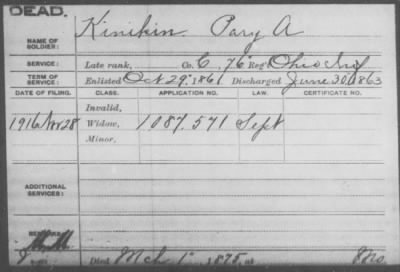 DEAD.
NAME OF SOLDIER: Kinikin Pary A
SERVICE: Late rank, Co. C, 76" Reg't Ohio Inf
TERM OF SERVICE: Enlisted Oct 29" 1861 Discharged June 30, 1863
DATE OF FILING. CLASS. APPLICATION NO. LAW. CERTIFICATE NO.
Invalid,
1916 Nov 28 Widow, 1087.571 Sept
Minor,
ADDITIONAL SERVICES:
REMARKS:
Died Mch 1", 1875, at Mo.